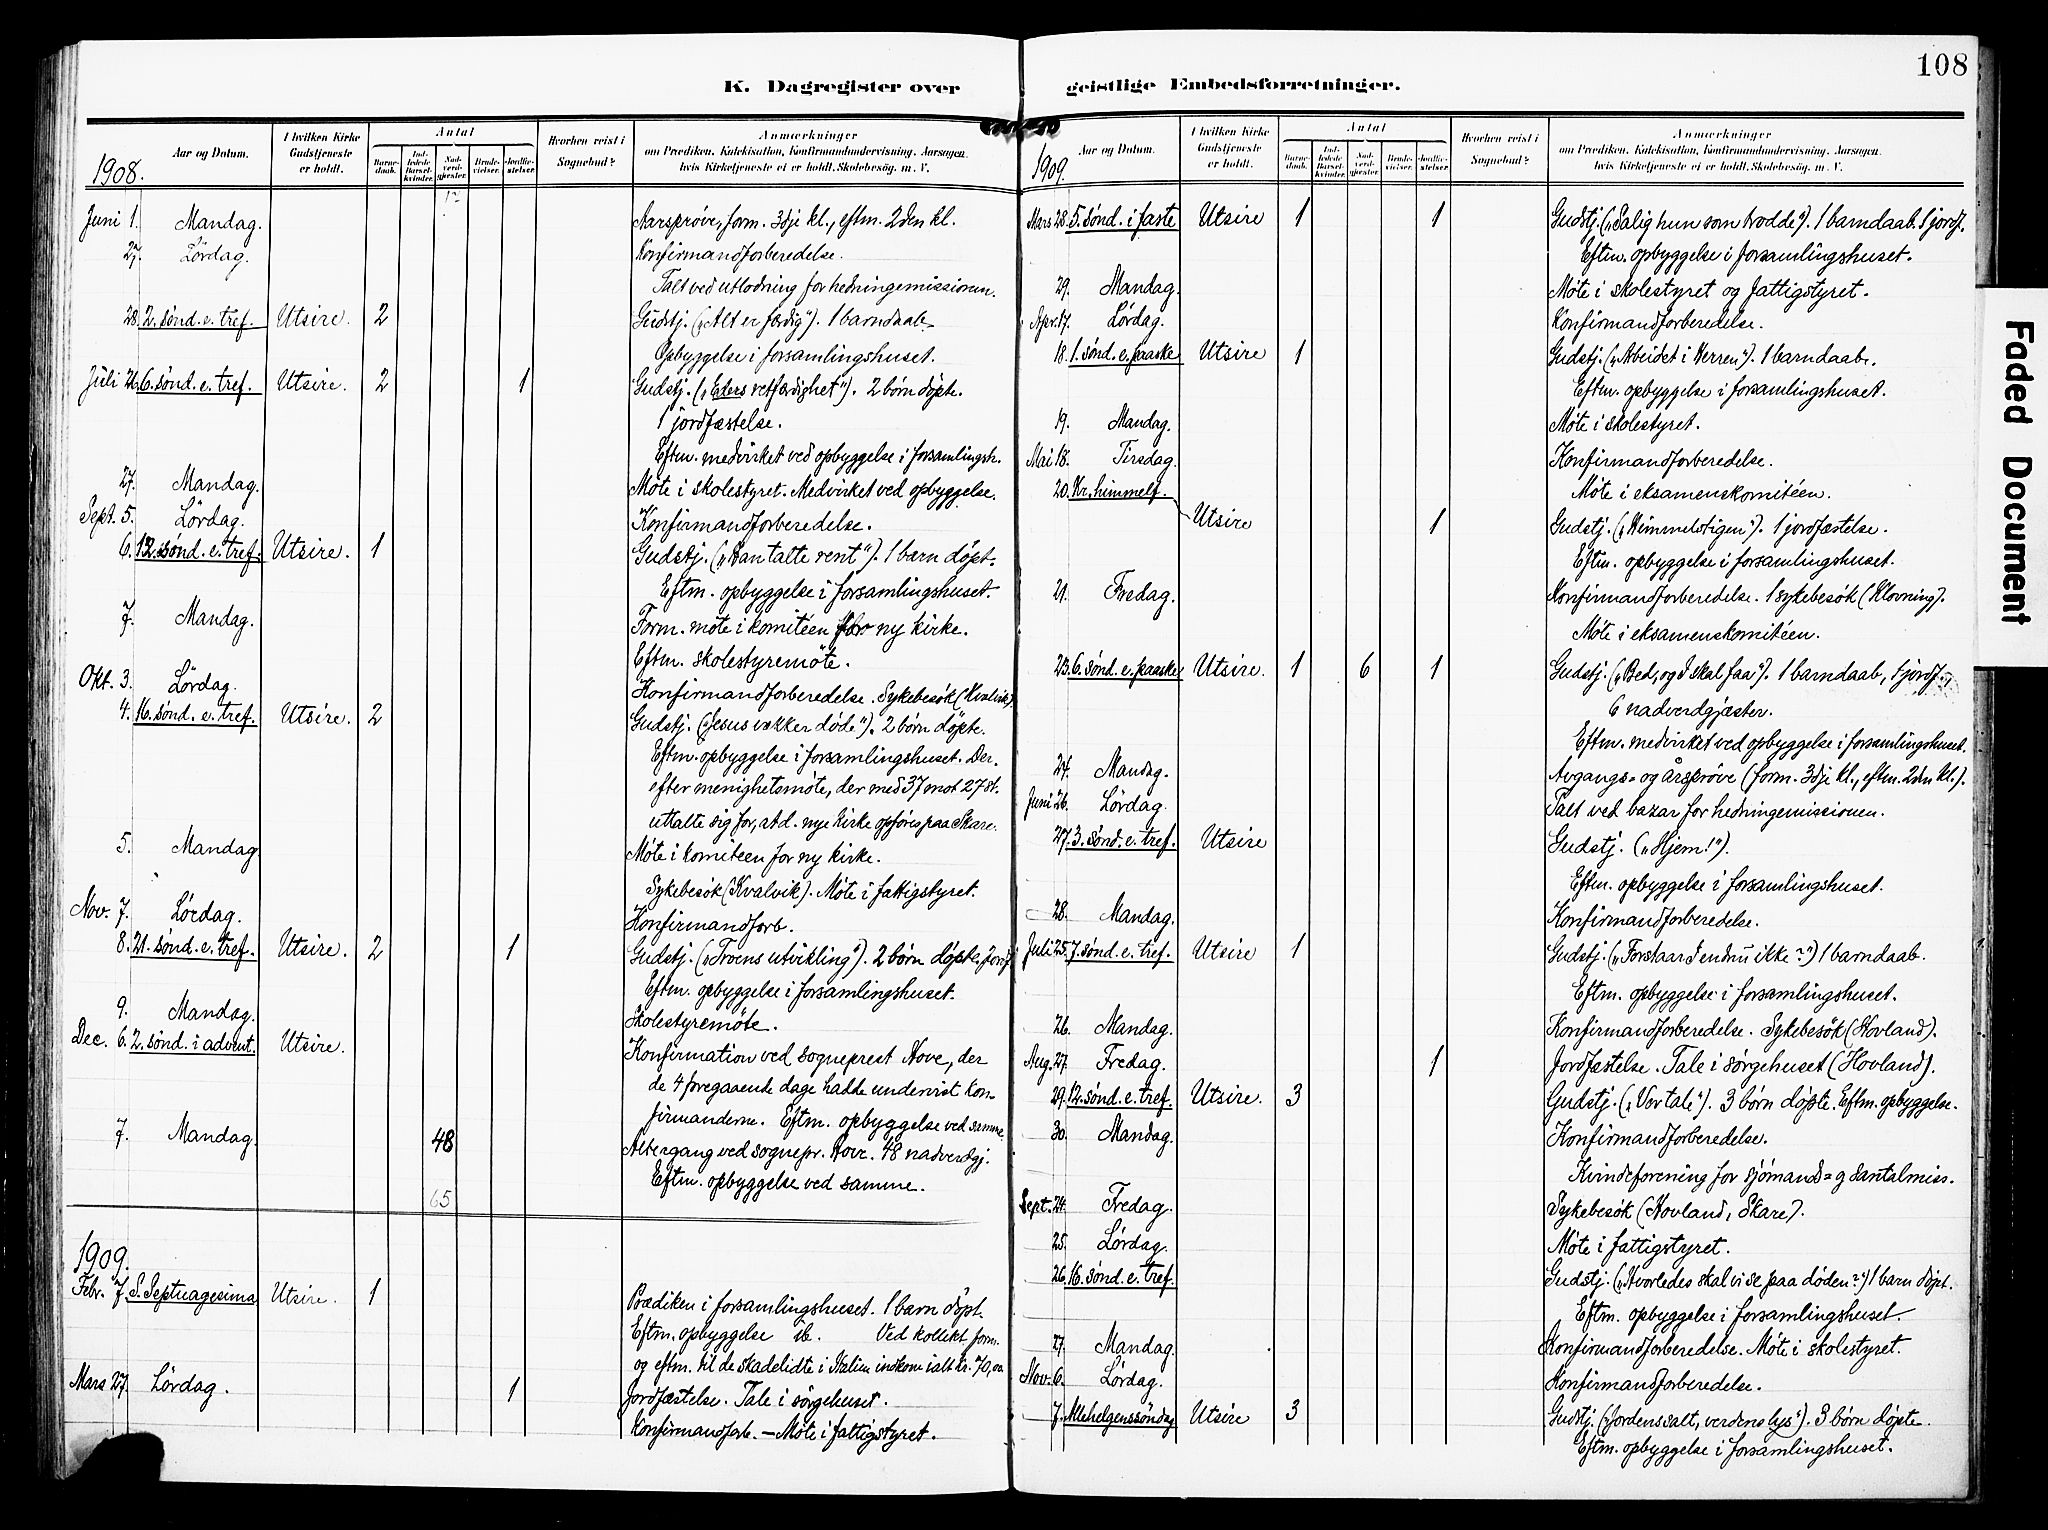 108
K. Dagregister over
Aar og Datum.
I hvilken Kirke Gudstjeneste er holdt.
Antal
Barnedaab.
Indledede Barselkvinder.
Nadverdgjester.
Brudevielser.
Jordfæstelser.
Hvorhen reist i Sognebud?
Anmærkninger
om Prædiken, Katekisation, Konfirmandundervisning, Aarsagen, hvis Kirketjeneste ei er holdt, Skolebesøg, m. V.
1908.
17
Juni 1. Mandag. Aarsprøve, form. 3dje kl., eftm. 2den kl.
27. Lördag. Konfirmandforberedelse.
Talt ved utlodning for hedningemissionen.
28. 2. sönd. e. tref. Utsire. 2 Gudstj. („Alt er færdig“). 1 barndaab.
Opbyggelse i forsamlingshuset.
Juli 26. 6. sönd. e. tref. Utsire. 2 1 Gudstj. („Eders retfærdighet“). 2 börn döpte.
1 jordfæstelse.
Eftm. medvirket ved opbyggelse i forsamlingsh.
27. Mandag. Möte i skolestyret. Medvirket ved opbyggelse.
Sept. 5. Lördag. Konfirmandforberedelse.
6. 12. sönd. e. tref. Utsire. 1 Gudstj. („Han talte rent“). 1 barn döpt.
Eftm. opbyggelse i forsamlingshuset.
7. Mandag. Form. möte i komitéen for ny kirke.
Eftm. skolestyremöte.
Okt. 3. Lördag. Konfirmandforberedelse. Sykebesök (Kvalvik).
4. 16. sönd. e. tref. Utsire. 2 Gudstj. („Jesus vækker døde“). 2 börn döpte.
Eftm. opbyggelse i forsamlingshuset. Der-
efter menighetsmöte, der med 37 mot 27 st.
uttalte sig for, at d. nye kirke opföres paa Skare.
5. Mandag. Möte i komiteen for ny kirke.
Sykebesök (Kvalvik). Möte i fattigstyret.
Nov. 7. Lördag. Konfirmandforb.
8. 21. sönd. e. tref. Utsire. 2 1 Gudstj. („Troens utvikling“). 2 börn döpte. 1 jordf.
Eftm. opbyggelse i forsamlingshuset.
9. Mandag. Skolestyremöte.
Dec. 6. 2. sönd. i advent. Utsire. Konfirmation ved sogneprest Hove, der
de 4 foregaaende dage hadde undervist kon-
firmanderne. Eftm. opbyggelse ved samme.
7. Mandag. 48 Altergang ved sognepr. Hove. 48 nadverdgj.
Eftm. opbyggelse ved samme.
65
1909.
Febr. 7. S. Septuagesima Utsire. 1 Prædiken i forsamlingshuset. 1 barn döpt.
Eftm. opbyggelse ib. Ved kollekt form.
og eftm. til de skadelidte i Italien indkom ialt kr. 70,00
Mars 27. Lördag. 1 Jordfæstelse. Tale i sörgehuset.
Konfirmandforb. – Möte i fattigstyret.
geistlige Embedsforretninger.
Aar og Datum.
I hvilken Kirke Gudstjeneste er holdt.
Antal
Barnedaab.
Indledede Barselkvinder.
Nadverdgjester.
Brudevielser.
Jordfæstelser.
Hvorhen reist i Sognebud?
Anmærkninger
om Prædiken, Katekisation, Konfirmandundervisning, Aarsagen, hvis Kirketjeneste ei er holdt, Skolebesøg, m. V.
1909.
Mars 28. 5. sönd. i faste Utsire 1 1 Gudstj. („Salig hun som trodde“). 1 barndaab. 1 jordf.
Eftm. opbyggelse i forsamlingshuset.
29. Mandag. Möte i skolestyret og fattigstyret.
Apr. 17. Lördag. Konfirmandforberedelse.
18. 1. sönd. e. paaske Utsire 1 Gudstj. („Arbeidet i Herren“). 1 barndaab.
Eftm. opbyggelse i forsamlingshuset.
19. Mandag. Möte i skolestyret.
Mai 18. Tirsdag. Konfirmandforberedelse.
20. Kr. himmelf. Möte i eksamenskomitéen.
Utsire 1 Gudstj. („Himmelstigen“). 1 jordfæstelse.
Eftm. opbyggelse i forsamlingshuset.
21. Fredag. Konfirmandforberedelse. 1 sykebesök (Klovning).
Möte i eksamenskomitéen.
23. 6. sönd. e. paaske Utsire. 1 6 1 Gudstj. („Bed, og I skal faa“). 1 barndaab, 1 jordf.,
6 nadverdgjæster.
Eftm. medvirket ved opbyggelse i forsamlingshuset.
24. Mandag. Avgangs- og årsprøve (form. 3dje kl., eftm. 2den kl.).
Juni 26. Lördag. Talt ved bazar for hedningemissionen.
27. 3. sönd. e. tref. Utsire Gudstj. („Hjem!“).
Eftm. opbyggelse i forsamlingshuset.
28. Mandag. Konfirmandforberedelse.
Juli 25. 7. sönd. e. tref. Utsire 1 Gudstj. („Forstaar I endnu ikke?“) 1 barndaab.
Eftm. opbyggelse i forsamlingshuset.
26. Mandag. Konfirmandforberedelse. Sykebesök (Hovland).
Aug. 27. Fredag. 1 Jordfæstelse. Tale i sörgehuset (Hovland).
29. 12. sönd. e. tref. Utsire. 3 Gudstj. („Vor tale“). 3 börn döpte. Eftm. opbyggelse.
30. Mandag. Konfirmandforberedelse.
Kvindeforening for sjömands- og santalmiss.
Sept. 24. Fredag. Sykebesök (Hovland, Skare).
25. Lördag. Möte i fattigstyret.
26. 16. sönd. e. tref. Gudstj. („Hvorledes skal vi se paa døden?“) 1 barn döpt.
Eftm. opbyggelse i forsamlingshuset.
27. Mandag. Konfirmandforberedelse. Möte i skolestyret.
Nov. 6. Lördag. Konfirmandforberedelse.
7. Allehelgenssöndag Utsire 3 Gudstj. („Jordens salt, verdens lys“). 3 börn döpte.
Eftm. opbyggelse i forsamlingshuset.
Faded Document